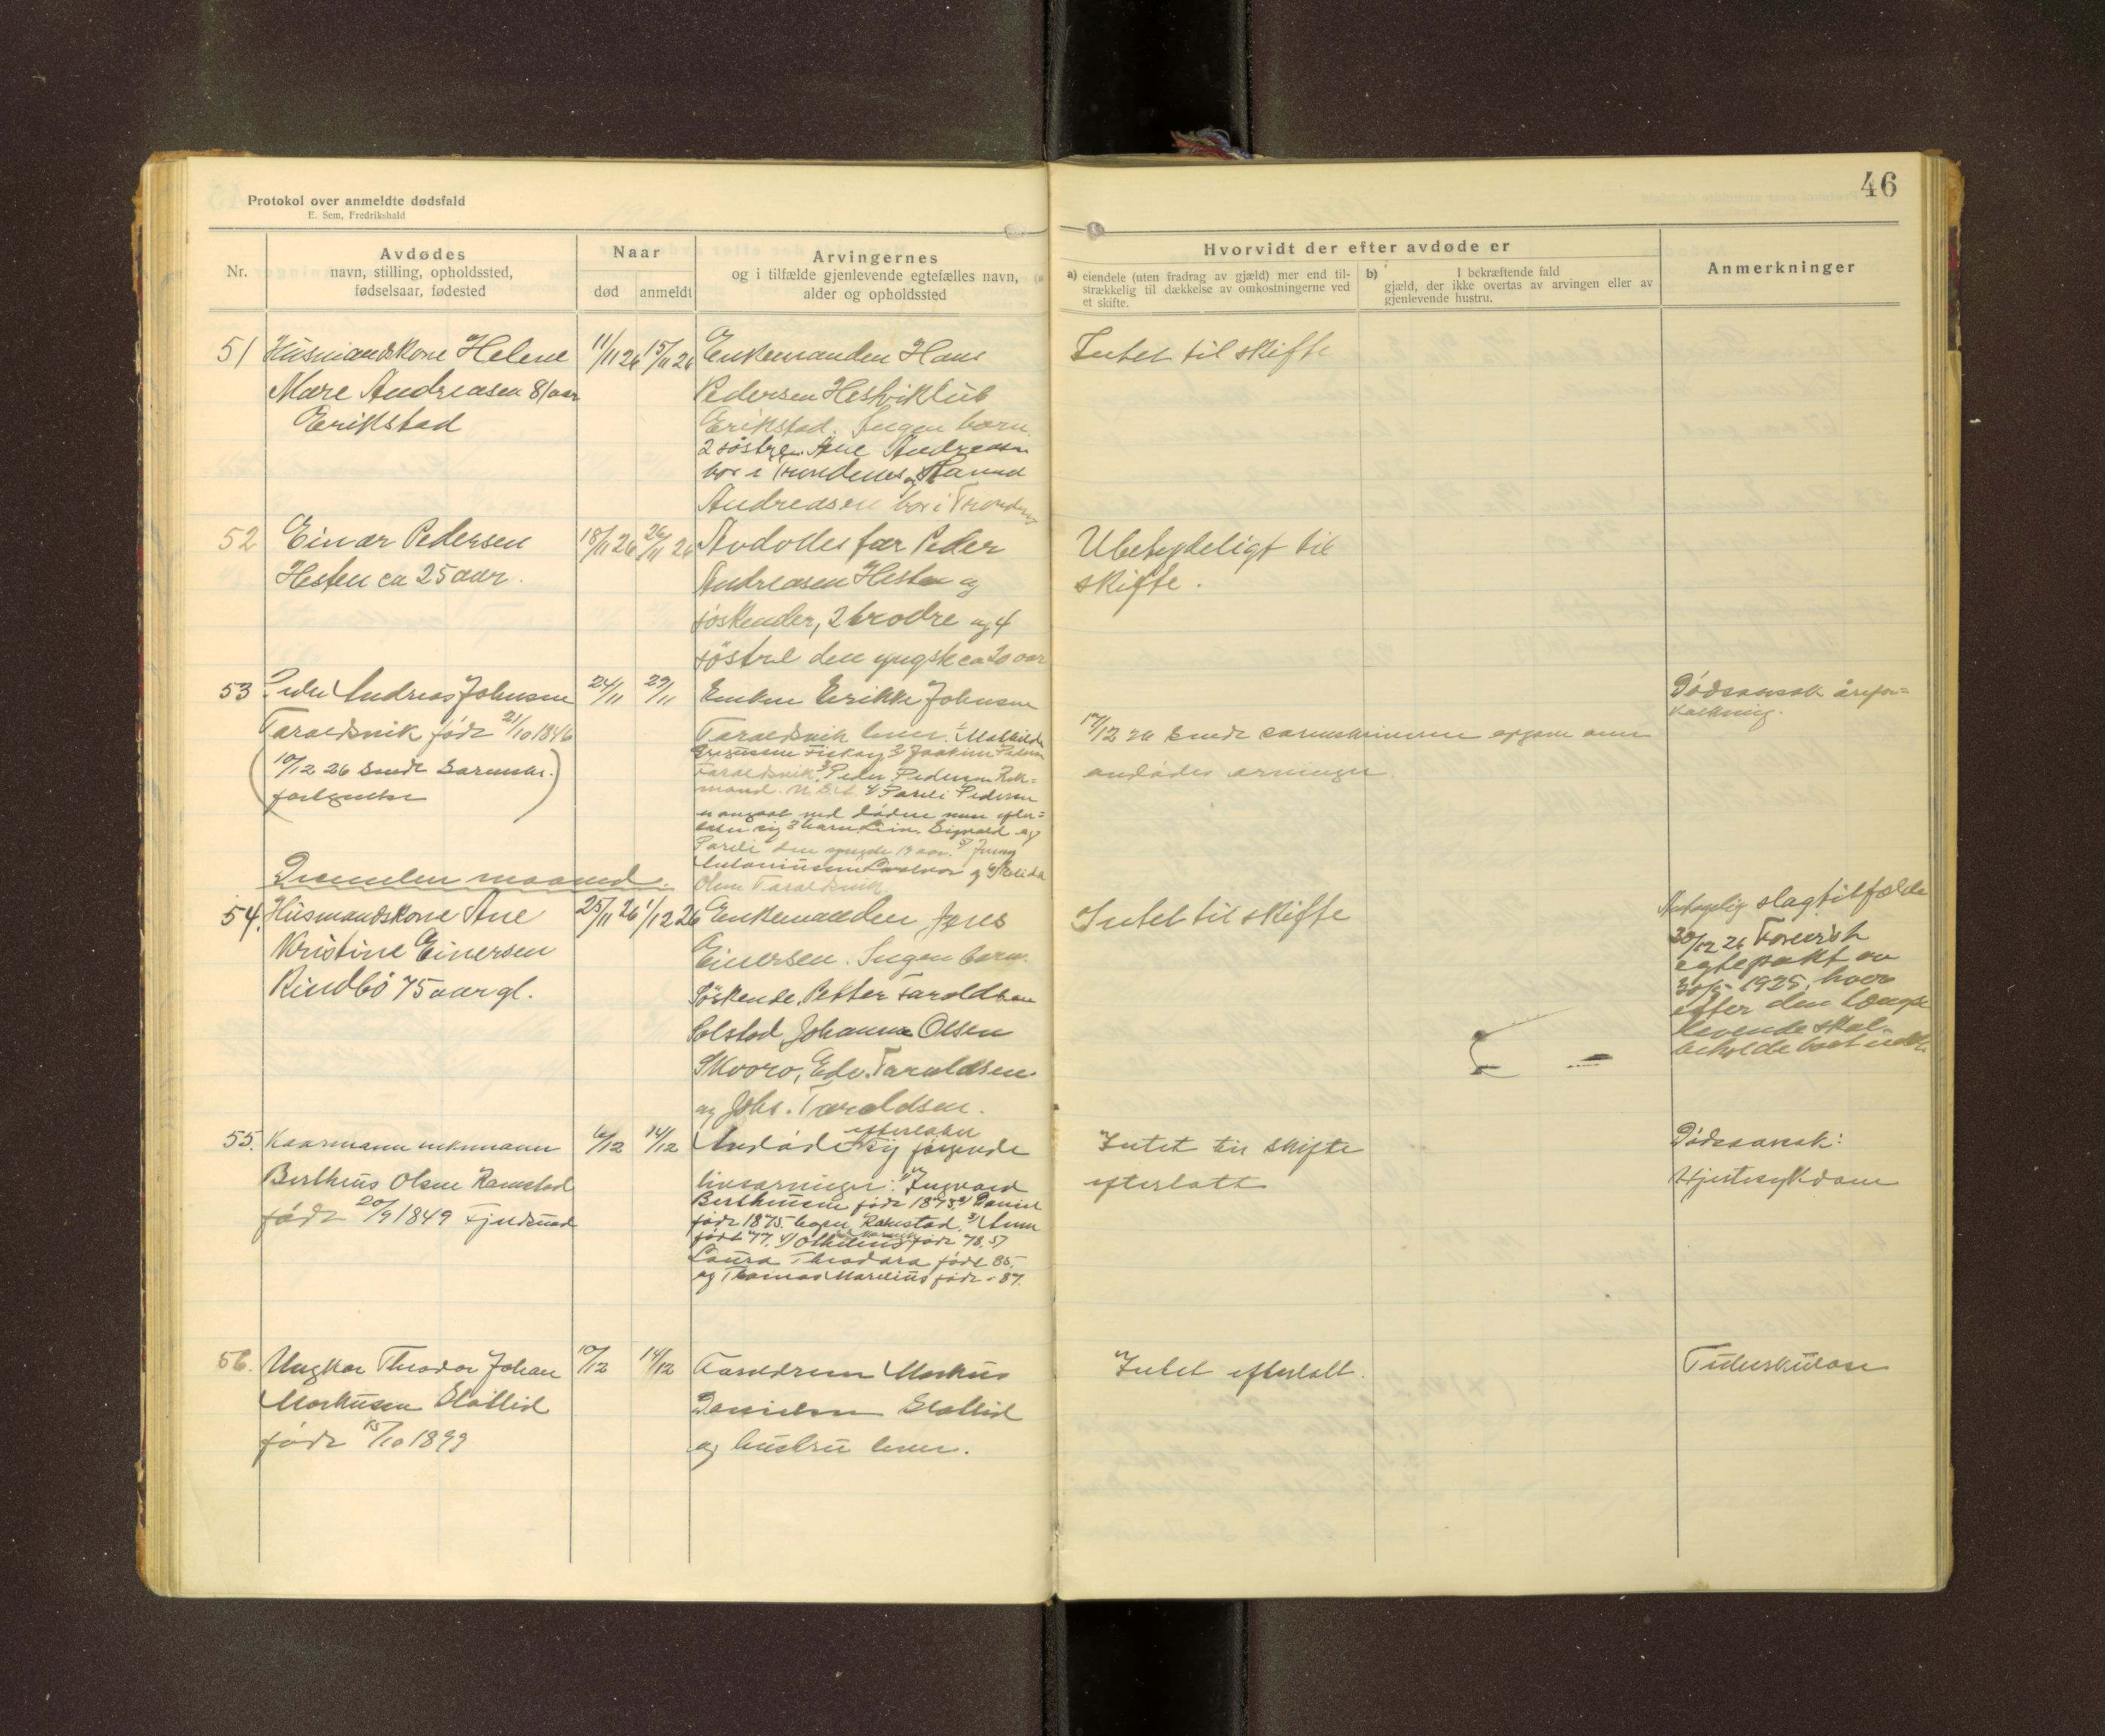 Protokol over anmeldte dødsfald
E. Sem, Fredrikshald
46
Nr.
Avdødes
navn, stilling, opholdssted,
fødselsaar, fødested
Naar
død
anmeldt
Arvingernes
og i tilfælde gjenlevende egtefælles navn,
alder og opholdssted
Hvorvidt der efter avdøde er
a) eiendele (uten fradrag av gjæld) mer end til-
strækkelig til dækkelse av omkostningerne ved
et skifte.
b) I bekræftende fald
gjæld, der ikke overtas av arvingen eller av
gjenlevende hustru.
Anmerkninger
51
Husmandskone Helene
Mare Andreasen 81 aar
Erikstad
11/11 26
15/11 26
Enkemanden Hans
Pedersen Hestviklub
Erikstad. Ingen barn.
2 søstre. Ane Andreasen
bor i Trondenes og
Andreasen bor i Trondenes
Intet til skifte
52
Einar Pedersen
Hesten ca 25 aar.
18/11 26
26/11 26
Avdødes far Peder
Andreasen Hesten og
søskender, 2 brødre og 4
søstre den yngste ca 20 aar
Ubetydeligt til
skifte.
53
Peder Andreas Johnsen
Taraldsvik født 21/10 1846
(10/12 26 sendt sorenskr.
fortegnelse)
24/11
29/11
Enken Erikke Johnsen
Taraldsvik lever. 1/ Mathilde
Gregusen Fiskøy, 2/ Joakim Pedersen
Taraldsvik 3/ Peder Pedersen
4/ Pareli Pedersen
er avgaat ved døden men efter-
later sig 3 barn Sigvald og
Pareli den yngste 19 aar. 5/ Jenny
Antoniussen og 6/
Olsen Taraldsvik.
17/12 26 sendt sorenskriveren opgave over
avdødes arvinger.
Dødsaarsak årefor=
kalkning.
December maaned.
54.
Husmandskone Ane
Kristine Einersen
Rindbø 75 aar gl.
25/11 26
1/12 26
Enkemanden Jens
Einersen. Ingen barn.
Søskende, Petter Taraldsen
Solstad, Johanna Olsen
Skooro, Edv. Taraldsen
og Johs. Taraldsen.
Intet til skifte
Antagelig slagtilfælde
30/12 26 Forevist
egtepakt av
30/5 1925, hvor
efter den længst
levende skal
beholde boet
55.
Kaarmann enkemann
Bertheus Olsen Ramstad
født 20/9 1849 Fjeldsnad
6/12
14/12
Avdøde efterlater sig følgende
livsarvinger: 1/ Ingvald
Bertheusen født 1873, 2/ Daniel
født 1875. begge Ramstad, 3/ Anna
født 77, 4/ Othelius født 78, 5/
Laura Theodora født 85,
og Thomas Marelius født - 87.
Intet til skifte
efterlatt
Dødsaarsak:
Hjertesykdom
56.
Ungkar Theodor Johan
Markusen Slåttlid
født 15/10 1899
10/12
14/12
Forældrene Markus
Danielsen Slåttlid
og hustru lever.
Intet efterlatt.
Tuberkulose